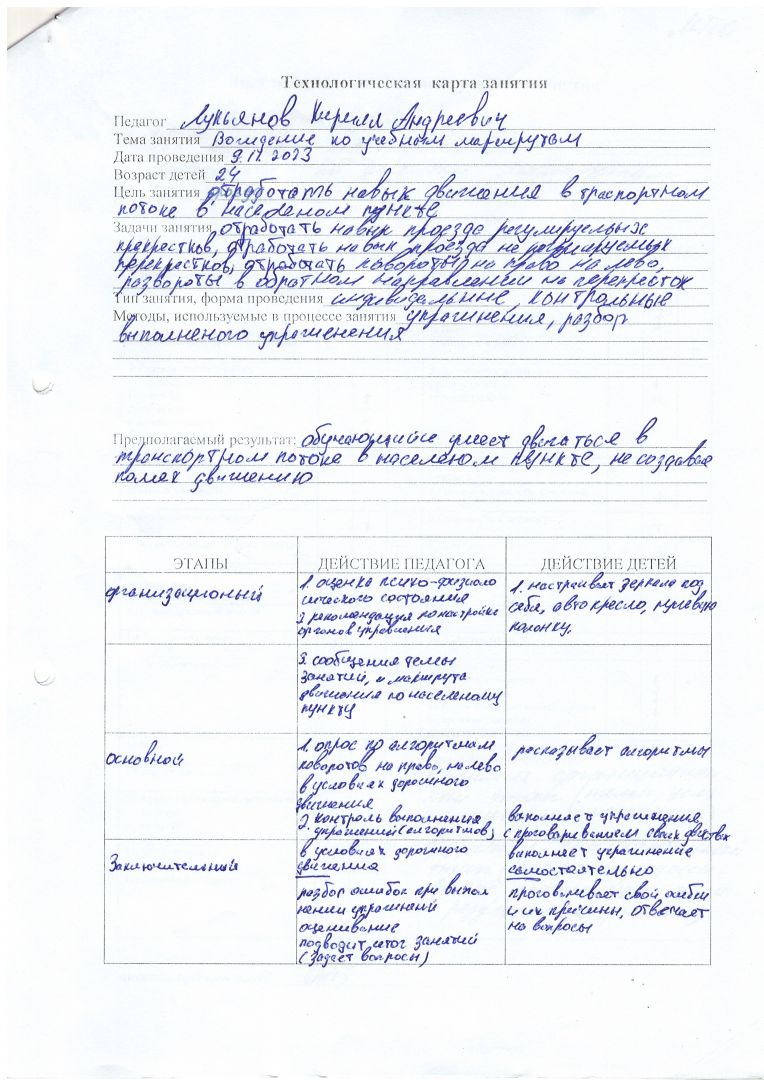 Технологическая карта занятия
Педагог Лукьянов Кирилл Андреевич
Тема занятия Вождение по учебным маршрутам
Дата проведения 9.12.2023
Возраст детей 24
Цель занятия отработать навык движения в траспортном
потоке в населеном пункте
Задачи занятия отработать навык проезда регулируемых
прекрестков, отработать навык проезда не регулируемых
перекрестков, отработать повороты на право на лево,
развороты в обратном направлении на перекресток
Тип занятия, форма проведения индивидальные, контрольные
Методы, используемые в процессе занятия упражнения, разбор
выполненого упражнения
Предполагаемый результат: обучающийся умеет двигаться в
транспортном потоке в населеном пункте, не создавая
помех движению
ЭТАПЫ ДЕЙСТВИЕ ПЕДАГОГА ДЕЙСТВИЕ ДЕТЕЙ
организационый
1. оценка психо-физиоло
гического состояния
2. рекомендация по настройке
органов управления
1. настраивает зеркала под
себя, авто кресло, рулевую
колонку.
3. сообщения темы
занятий, и маршрута
движения по населеному
пункту
основной
1. опрос по алгоритмам
поворотов на право, на лево
в условиях дорожного
движения
2. контроль выполнения
упражнений (алгоритмов)
расказывает алгоритмы
выполняет упражнения
с проговариванием своих действий
Заключительный
в условиях дорожного
движения
разбор ошибок при выпол
нении упражнений
оценивание
подводит итог занятий
(задаёт вопросы)
выполняет упражнение
самостоятельно
проговаливает свои ошибки
и их причины, отвечает
на вопросы